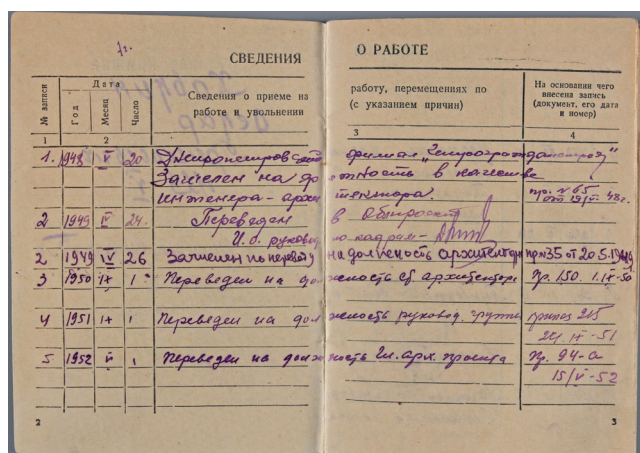 1г.
СВЕДЕНИЯ О РАБОТЕ
№ записи
Дата
Год
Месяц
Число
Сведения о приеме на работу, перемещениях по
работе и увольнении (с указанием причин)
На основании чего
внесена запись
(документ, его дата
и номер)
1 2 3 4
1. 1948 V 20 филиал
Зачислен на должность в качестве
инженера-архитектора. пр. № 65
2 1949 IV 24. Переведен в
И.о. руковод по кадрам
2 1949 IV 26 Зачислен на должность архитектора пр № 35 от 20.5.1949
3 1950 IX 1 Переведен на должность ст. архитектора Пр. 150. 1.IX-50
4 1951 IX 1 Переведен на должность руковод. группы приказ 215
24.IX-51
5 1952 V 1 Переведен на должность Гл. арх. проекта Пр. 94-а
15/V-52
2 3